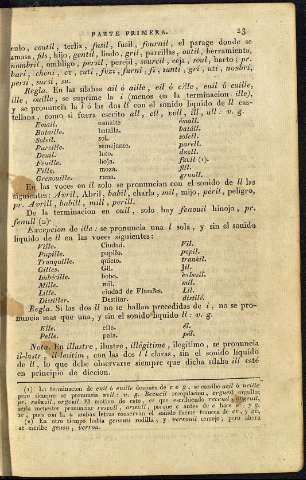 PARTE PRIMERA. 23
culo, coutil, terlis, fusil, fusil, fournil, el parage donde se
amasa, fils, hijo, gentil, lindo, gril, parrillas, outil, herramienta,
nombril, ombligo, persil, perejil, sourcil, ceja, soul, harto; pr.
Regla. En las sílabas ail ó aille, eil ó eille, euil ó euille,
ille, ouille, se suprime la i (menos en la terminacion ille),
y se pronuncia la l ó las dos ll con el sonido líquido de ll cas-
tellana, como si fuera escrito all, ell, eull, ill, ull: v. g.
Email. esmalte émall.
Bataille. batalla. batáll.
Soleil. sol. soléll.
Pareille. semejante. paréll.
Deuil. luto. deull.
Feuille. hoja. feull (1).
Fille. moza. fill.
Grenouille. rana. grnull.
En las voces en il solo se pronuncian con el sonido de ll las
siguientes: Avril, Abril, babil, charla, mil, mijo, péril, peligro,
pr. Avrill, babill, mill, perill.
De la terminacion en ouil, solo hay fenouil hinojo, pr.
fenull (2):
Excepcion de ille: se pronuncia una l sola, y sin el sonido
líquido de ll en las voces siguientes:
Ville. Ciudad. Vil.
Pupille. pupilo. pupil.
Tranquille. quieto. trankil.
Gilles. Gil. Jil.
Imbécille. bobo.
Mille. mil. mil.
Lille. ciudad de Flandes. Lil.
Distiller. Destilar. distilé.
Regla. Si las dos ll no se hallan precedidas de i, no se pro-
nuncia mas que una, y sin el sonido líquido ll: v. g.
Elle. ella. él.
Pelle. pala. pél.
Nota. En illustre, ilustre, illégitime, ilegítimo, se pronuncia
il-lustr, il-lesitim, con las dos l l claras, sin el sonido líquido
de ll, lo que debe observarse siempre que dicha sílaba ill esté
en principio de diccion.
(1) La terminacion de euil ó euille despues de c ó g, se escribe ueil ó ueille
pero siempre se pronuncia eull: v. g. Recueil recopilacion, orgueil orgullo;
(2) En otro tiempo habia genouil rodilla, y verrouil cerrojo; pero ahora
se escribe genou, verrou.